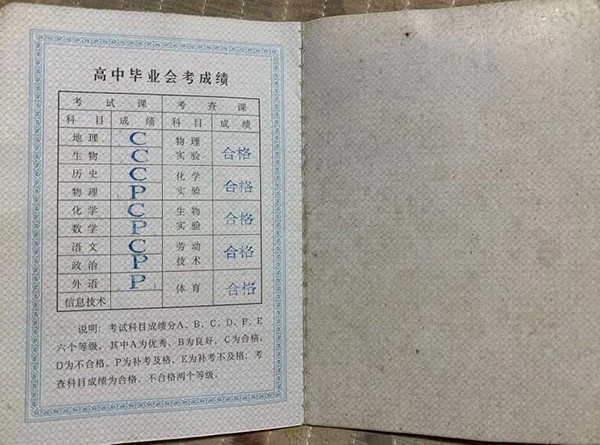 高中毕业会考成绩
考试课 考查课
科目 成绩 科目 成绩
地理 C 物理
生物 C 实验 合格
历史 C 化学
物理 P 实验 合格
化学 C 生物
数学 P 实验 合格
语文 C 劳动
政治 P 技术 合格
外语 P 体育 合格
信息技术
说明：考试科目成绩分A、B、C、D、P、E
六个等级，其中A为优秀、B为良好、C为合格、
D为不合格，P为补考及格、E为补考不及格；考
查科目成绩为合格、不合格两个等级。